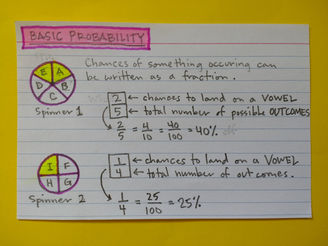 BASIC PROBABILITY
Chances of something occuring can
be written as a fraction.
E A
D B
C
Spinner 1
2 ← chances to land on a VOWEL
5 ← total number of possible OUTCOMES
2/5 = 4/10 = 40/100 = 40%
I F
H G
Spinner 2
1 ← chances to land on a VOWEL
4 ← total number of outcomes.
1/4 = 25/100 = 25%